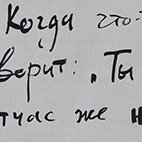 Когда что-
ворит: „Ты
тчас же н